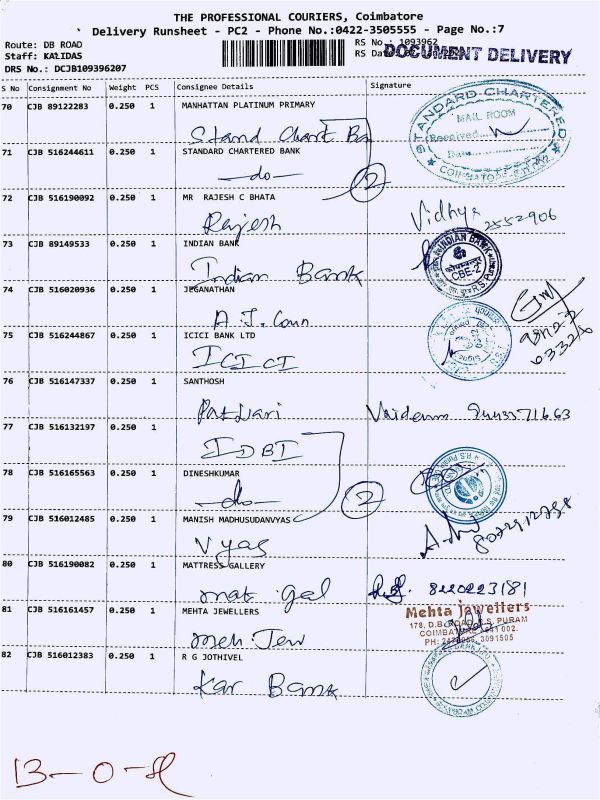 THE PROFESSIONAL COURIERS, Coimbatore
Delivery Runsheet - PC2 - Phone No.:0422-3505555 - Page No.:7
Route: DB ROAD
RS No.: 1093962
Staff: KALIDAS
RS Date:
DOCUMENT DELIVERY
DRS No.: DCJB109396207
S No Consignment No Weight PCS Consignee Details Signature
70 CJB 89122283 0.250 1 MANHATTAN PLATINUM PRIMARY
Stand Chart Ba
STANDARD CHARTERED
MAIL ROOM
Received
Date
71 CJB 516244611 0.250 1 STANDARD CHARTERED BANK
-do- 2
72 CJB 516190092 0.250 1 MR RAJESH C BHATA
Rajesh Vidhya 2552906
73 CJB 89149533 0.250 1 INDIAN BANK
Indian Bank
INDIAN BANK
CBE-2
R.S.
74 CJB 516020936 0.250 1 JEGANATHAN
A.J. Conn
75 CJB 516244867 0.250 1 ICICI BANK LTD
ICICI
76 CJB 516147337 0.250 1 SANTHOSH
77 CJB 516132197 0.250 1
IDBI
78 CJB 516165563 0.250 1 DINESHKUMAR
-do- 2
79 CJB 516012485 0.250 1 MANISH MADHUSUDANVYAS
Vyas
80 CJB 516190082 0.250 1 MATTRESS GALLERY
mat gal 8220223181
81 CJB 516161457 0.250 1 MEHTA JEWELLERS
Meh Jew
Mehta jewellers
178, D.B. ROAD, R.S. PURAM
COIMBATORE 641 002.
82 CJB 516012383 0.250 1 R G JOTHIVEL
Kar Bank